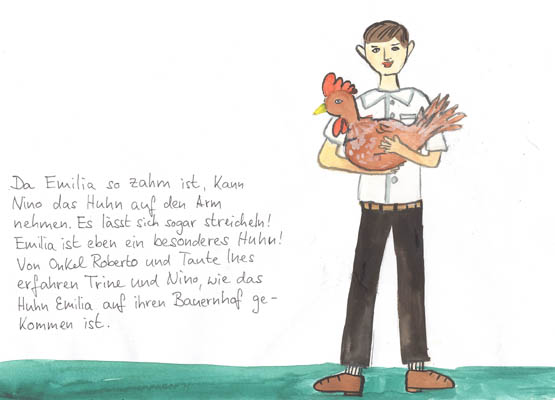 Da Emilia so zahm ist, kann
Nino das Huhn auf den Arm
nehmen. Es lässt sich sogar streicheln!
Emilia ist eben ein besonderes Huhn!
Von Onkel Roberto und Tante Ines
erfahren Trine und Nino, wie das
Huhn Emilia auf ihren Bauernhof ge-
kommen ist.